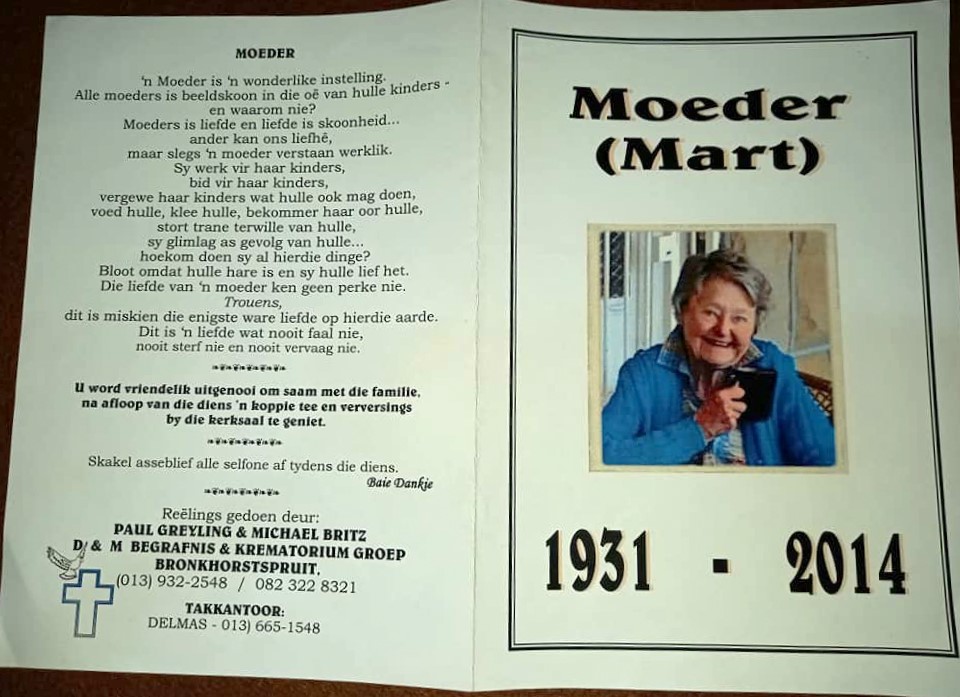 MOEDER
'n Moeder is 'n wonderlike instelling.
Alle moeders is beeldskoon in die oë van hulle kinders -
en waarom nie?
Moeders is liefde en liefde is skoonheid...
ander kan ons liefhê,
maar slegs 'n moeder verstaan werklik.
Sy werk vir haar kinders,
bid vir haar kinders,
vergewe haar kinders wat hulle ook mag doen,
voed hulle, klee hulle, bekommer haar oor hulle,
stort trane terwille van hulle,
sy glimlag as gevolg van hulle...
hoekom doen sy al hierdie dinge?
Bloot omdat hulle hare is en sy hulle lief het.
Die liefde van 'n moeder ken geen perke nie.
Trouens,
dit is miskien die enigste ware liefde op hierdie aarde.
Dit is 'n liefde wat nooit faal nie,
nooit sterf nie en nooit vervaag nie.
U word vriendelik uitgenooi om saam met die familie,
na afloop van die diens 'n koppie tee en verversings
by die kerksaal te geniet.
Skakel asseblief alle selfone af tydens die diens.
Baie Dankie
Reëlings gedoen deur:
PAUL GREYLING & MICHAEL BRITZ
D & M BEGRAFNIS & KREMATORIUM GROEP
BRONKHORSTSPRUIT,
(013) 932-2548 / 082 322 8321
TAKKANTOOR:
DELMAS - 013) 665-1548
Moeder
(Mart)
1931 - 2014